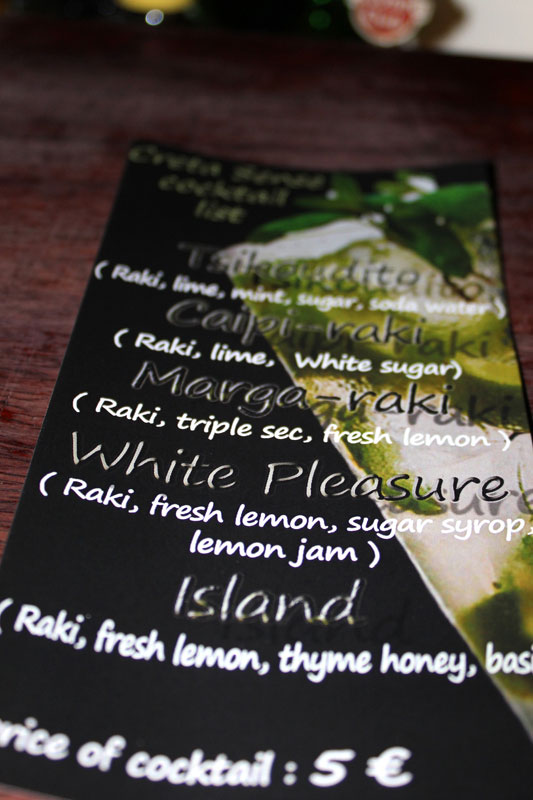 Creta Senses
cocktail
list
Tsikoudito
( Raki, lime, mint, sugar, soda water )
Caipi-raki
( Raki, lime, White sugar)
Marga-raki
( Raki, triple sec, fresh lemon )
White Pleasure
( Raki, fresh lemon, sugar syrop,
lemon jam )
Island
( Raki, fresh lemon, thyme honey, basi
rice of cocktail : 5 €